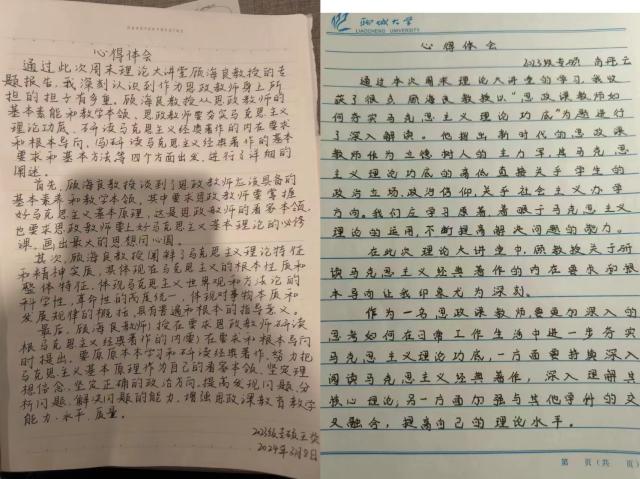 心得体会
通过此次周末理论大讲堂顾海良教授的专
题报告，我深刻认识到作为思政教师身上所
担的担子有多重。顾海良教授从思政教师的
基本素能和教学本领、思政教师要夯实马克思主义
理论功底、研读马克思主义经典著作的内在要求
和根本导向、研读马克思主义经典著作的基本
要求和基本方法等四个方面出发，进行了详细的
阐述。
首先，顾海良教授谈到了思政教师应该具备的
基本素养和教学本领，其中要求思政教师要掌握
好马克思主义基本原理，这是思政教师的看家本领，
也要求思政教师要上好马克思主义基本理论的必修
课，画出最大的思想同心圆。
其次，顾海良教授阐释了马克思主义理论特征
和精神实质，其体现在马克思主义的根本性质和
整体特征，体现马克思主义世界观和方法论的
科学性、革命性的高度统一，体现对事物本质和
发展规律的概括，具有普遍和根本的指导意义。
最后，顾海良教师授在要求思政教师研读
马克思主义经典著作的内在要求和根本导向
时提出，要原原本本学习和研读经典著作，努力把
马克思主义基本原理作为自己的看家本领，坚定理
想信念，坚定正确的政治方向，提高发现问题、分
析问题、解决问题的能力，增强思政课教育教学
能力、水平、质量。
2023级
2024年3月8日
聊城大学
LIAOCHENG UNIVERSITY
心得体会
2023级专硕
通过本次周末理论大讲堂的学习，我收
获了很多，顾海良教授以“思政课教师如
何夯实马克思主义理论功底”为题进行
了深入解读。他提出新时代的思政课
教师作为立德树人的主力军，其马克思主
义理论功底的高低直接关乎学生的
政治立场、政治信仰，关乎社会主义办学
方向。我们在学习原著，着眼于马克思主义
理论的运用，不断提高解决问题的能力。
在此次理论大讲堂中，顾教授关于研
读马克思主义经典著作的内在要求和根
本导向让我印象尤为深刻。
作为一名思政课教师要更加深入的
思考如何在日常工作生活中进一步夯实
马克思主义理论功底，一方面要持续深入
阅读马克思主义经典著作，深入理解其
核心理论，另一方面加强与其他学科的交
叉融合，提高自己的理论水平。
第 页（共 页）